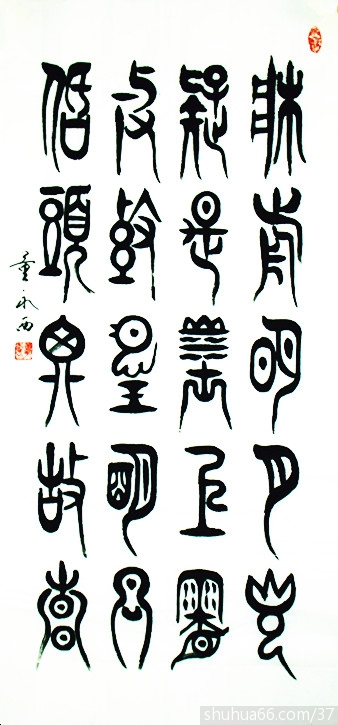 牀前明月光
疑是地上霜
舉頭望明月
低頭思故鄉
董永西
shuhua66.com/37